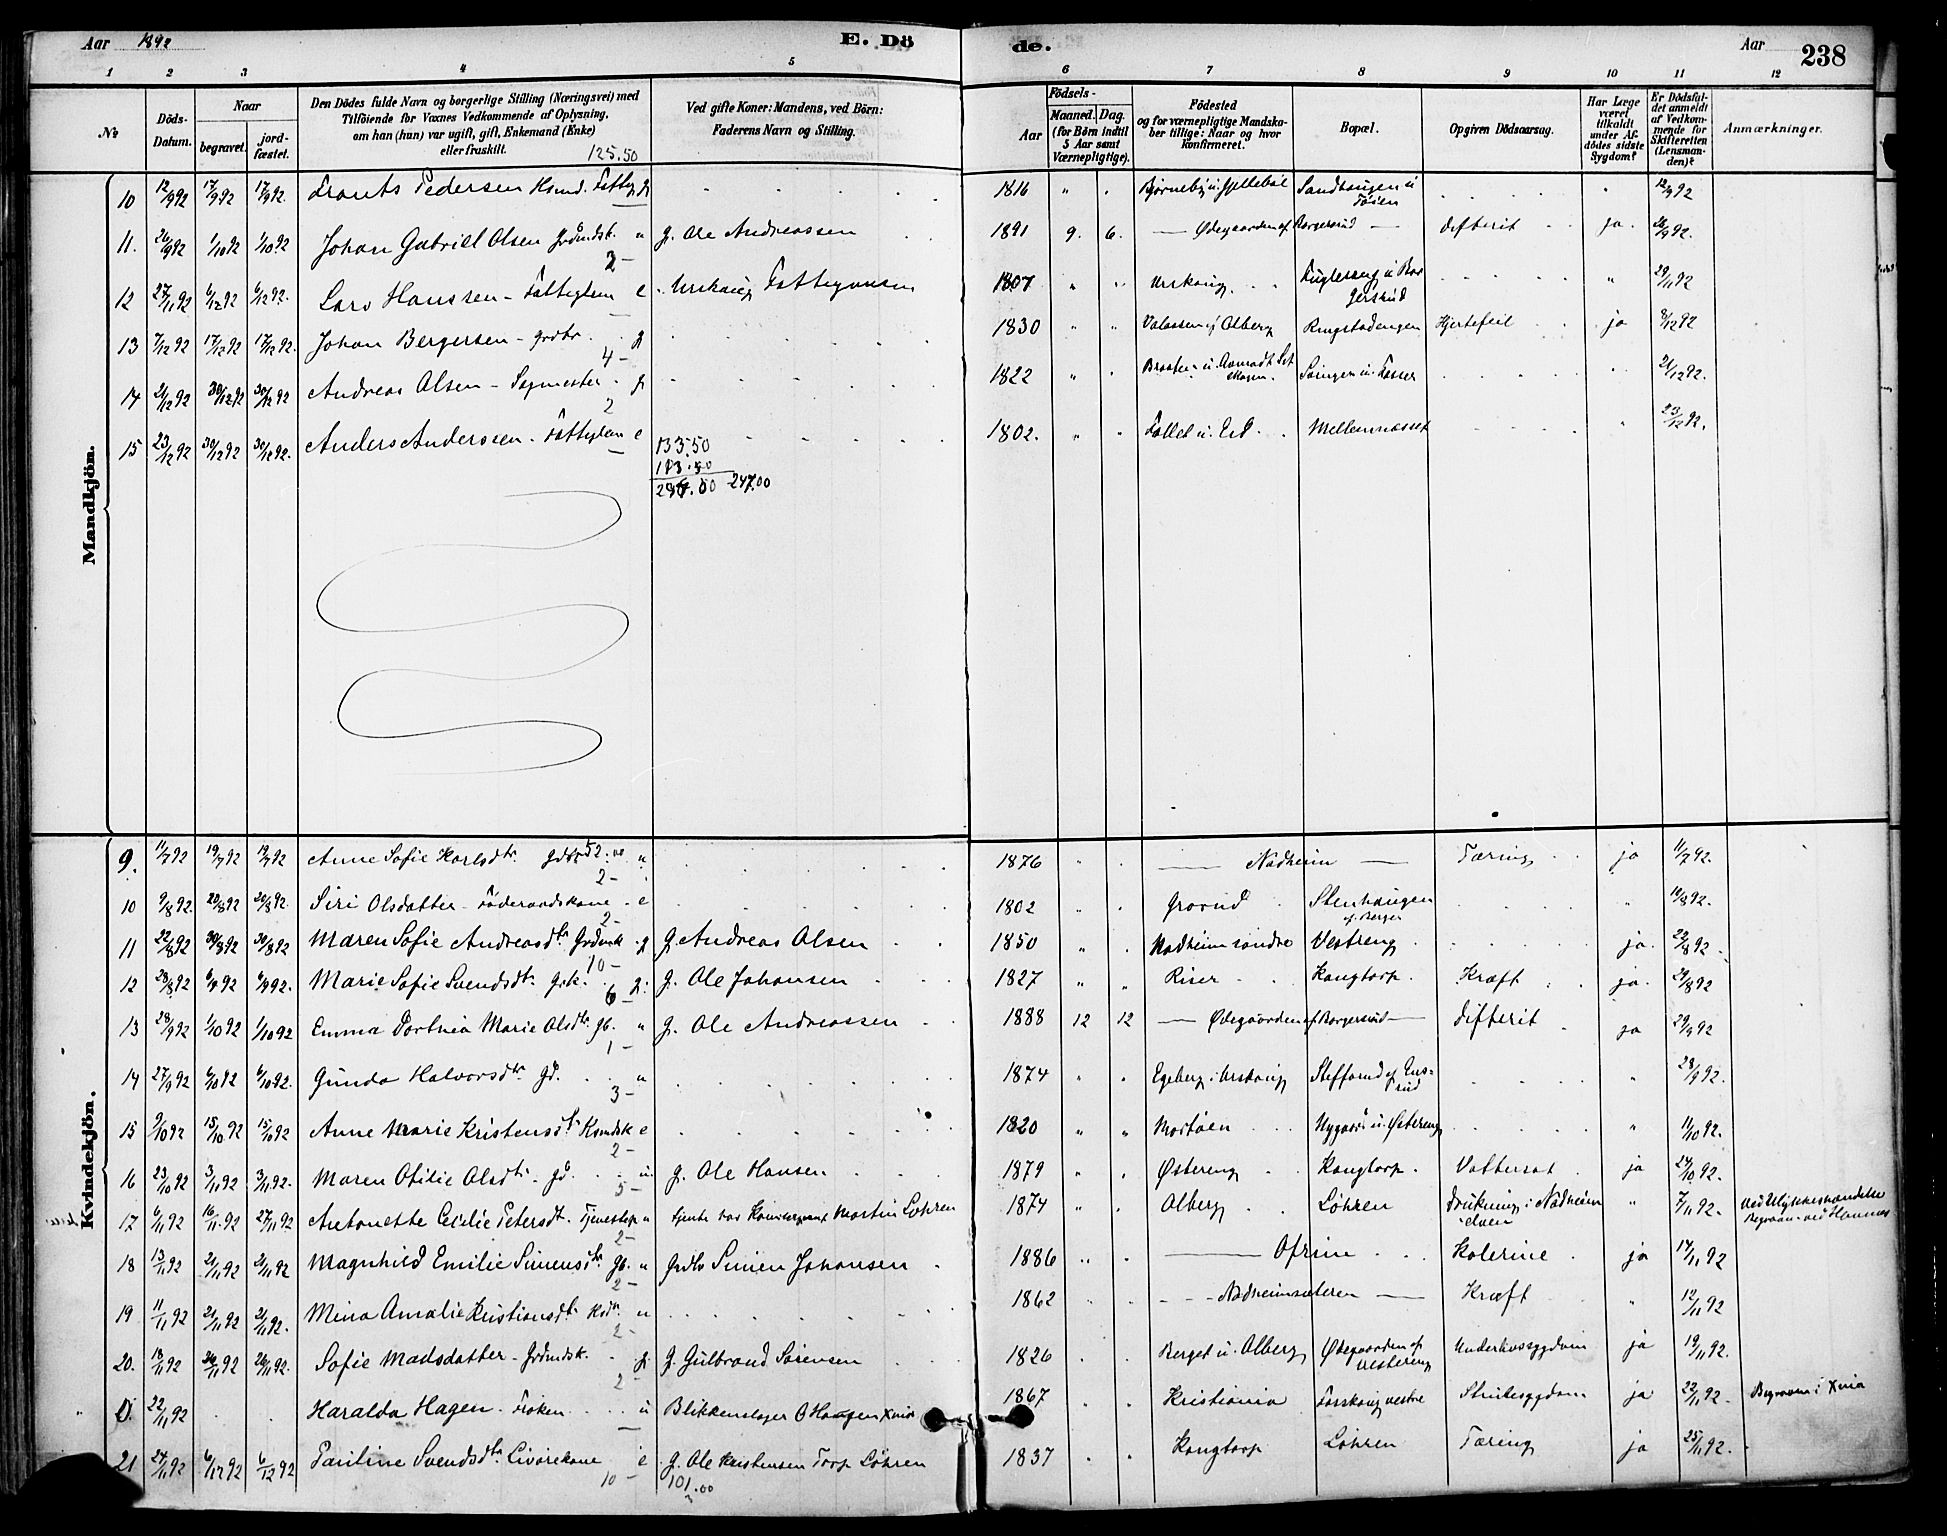 Aar 1892 E. Dö de. Aar 238
1 2 3 4 5 6 7 8 9 10 11 12
No Döds-Datum. Naar begravet. jord-fæstet. Den Dödes fulde Navn og borgerlige Stilling (Næringsvei) med Tilföiende for Vaxnes Vedkommende af Oplysning, om han (hun) var ugift, gift, Enkemand (Enke) eller fraskilt. 125.50 Ved gifte Koner: Mandens, ved Börn: Faderens Navn og Stilling. Aar Födsels- Maaned. Dag. (for Börn indtil 5 Aar samt Værnepligtige). Födested og for værnepligtige Mandska-ber tillige: Naar og hvor konfirmeret. Bopæl. Opgiven Dödsaarsag. Har Læge været tilkaldt under Af-dödes sidste Sygdom? Er Dödsfal-det anmeldt af Vedkom-mende for Skifteretten (Lensman-den)? Anmærkninger.
Mandkjön.
10 12/9 92 17/9 92 17/9 92. Frants Pedersen Ksmd. 1816 " . 12/9 92
11. 26/9 92 1/10 92 1/10 92 Johan Gabriel Olsen " g. Ole Andreassen 1891 9. 6. — Ødegaarden af Borgersrud — difterit ja. 26/9 92.
2-
12 27/11 92 6/12 92 6/12 92. Lars Hanssen - Fattiglem e Urskoug Fattigvæsen 1807 " " Urskoug " 29/11 92
13 7/12 92 17/12 92 17/12 92. Johan Bergersen - grdbr. g 1830 " " Ringstadengen Hjertefeil ja 8/12 92
4-
14 21/12 92 30/12 92 30/12 92 Andreas Olsen - Sagmester g 1822 " . 21/12 92.
2
15 23/12 92 30/12 92 30/12 92. Anders Anderssen - Fattiglem e 1802. " " Mellemnæsset " 23/12 92.
133.50
113.50
247.00
Kvindekjön.
9. 11/7 92 19/7 92 19/7 92 Anne Sofie Karlsdtr. " 1876 " . — Nadheim — Tæring ja 11/7 92.
2-
10 9/8 92. 20/8 92 20/8 92. Siri Olsdatter - Föderaadskone e 1802 " . Grorud Stenhaugen af Berger " 10/8 92.
2-
11 22/8 92 30/8 92 30/8 92 Maren Sofie Andreasdtr. g g. Andreas Olsen 1850 " . Nadheim søndre Vestreng ja. 22/8 92.
10-
12 28/8 92 6/9 92 6/9 92. Marie Sofie Svendsdtr. grk. g. g. Ole Johansen 1827 " " Riser Kangtorp. Kræft ja. 29/8 92
6
13 28/9 92 1/10 92 1/10 92 Emma Dortnea Marie Olsdtr. gb. " g. Ole Andreassen 1888 12 12 — Ødegaarden af Borgersrud — difterit ja 29/9 92
1-
14 27/9 92 6/10 92 6/10 92. Gunda Halvorsdtr. gd. u 1874 " " Egeberg i Urskoug " 28/9 92.
3-
15 9/10 92 15/10 92 15/10 92 Anne Marie Kristensdtr. Ksmdsk e 1820 " " Mostøen Nygaard u. Østereng " 11/10 92.
2-
16 23/10 92 3/11 92 3/11 92. Maren Otilie Olsdtr. gd. u. g. Ole Hansen 1879 " . Østereng Kangtorp. Vattersot ja 24/10 92.
5-
17 6/11 92 16/11 92 27/11 92 Antonette Cecilie Petersdtr. Tjenestep u Martin Løhren 1874 " . Olberg Løhren Drukning i Nadheim elven " 7/11 92. ved Ulykkeshændelse
2-
18 13/11 92 21/11 92 21/11 92 Magnhild Emilie Simensdtr. gb. " Simen Johansen 1886 " . — Ofrim Kolerine ja 14/11 92
2-
19 11/11 92 21/11 92 21/11 92. Mina Amalie Kristiansdtr. u 1862 Nadheimsæteren — Kræft " 12/11 92
2-
20. 18/11 92 26/11 92 26/11 92. Sofie Madsdatter - g g. Gulbrand Sørensen 1826 Berget u. Olberg Ødegaarden af Vestereng Underlivssygdom ja 19/11 92.
2-
0. 22/11 92 Haralda Hagen - Frøken u Blikkenslager O Haagen Xnia 1867 Kristiania vestre Strubesygdom ja 22/11 92. Begraven i Xnia
21 24/11 92 6/12 92 6/12 92 Pauline Svendsdtr. e g. Ole Kristensen Torp Løhren 1837 Kangtorp Løhren Tæring ja 25/11 92.
10- 101.00